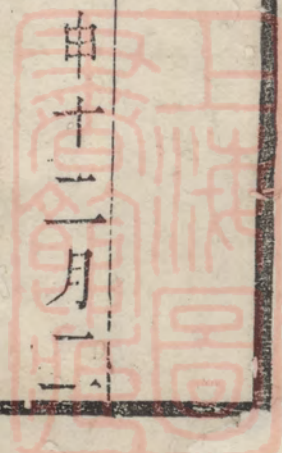 申十二月二
上海圖
書館藏